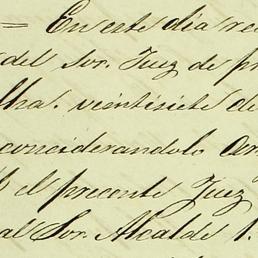 = En este dia rec
del Sor. Juez de pr
lha. vientisiete de
conciderandolo arr
el precente Juez
al Sor. Alcalde 1.